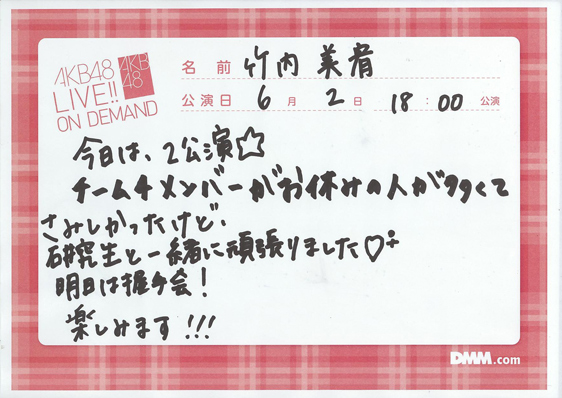 AKB48
LIVE!!
ON DEMAND
AKB
48
名前 竹内 美宥
公演日 6月 2日 18:00 公演
今日は、2公演☆
チーム4メンバーがお休みの人が多くて
さみしかったけど、
研究生と一緒に頑張りました♡
明日は握手会!
楽しみます!!!
DMM.com